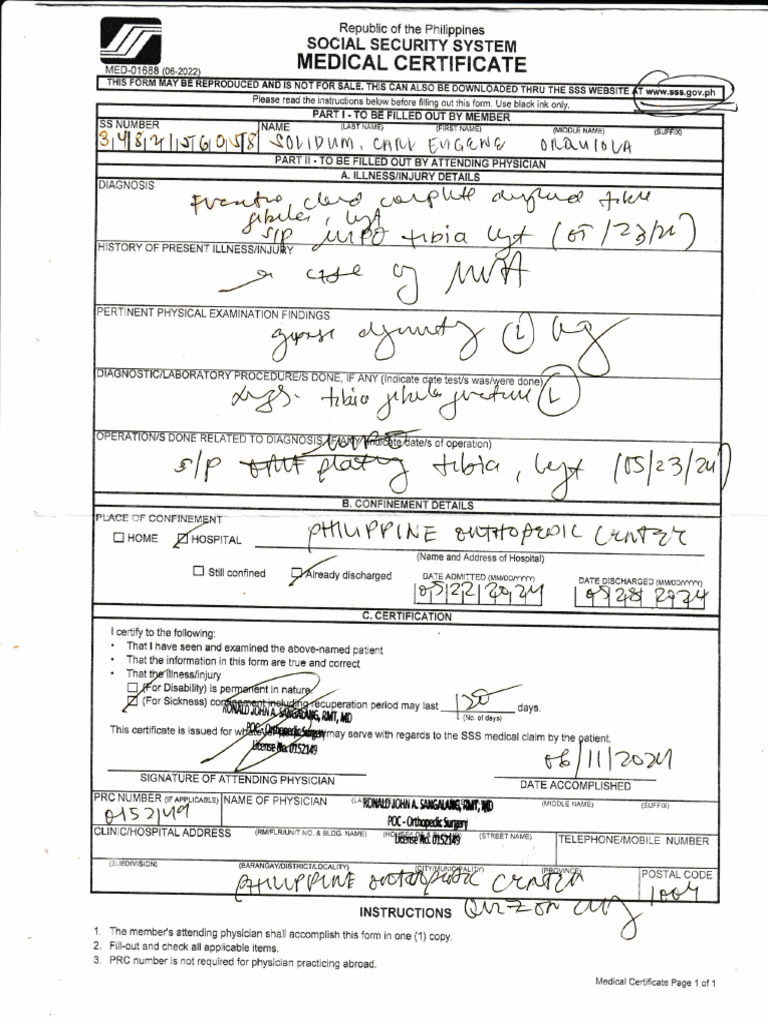 Republic of the Philippines
SOCIAL SECURITY SYSTEM
MEDICAL CERTIFICATE
MED-01688 (06-2022)
THIS FORM MAY BE REPRODUCED AND IS NOT FOR SALE. THIS CAN ALSO BE DOWNLOADED THRU THE SSS WEBSITE AT www.sss.gov.ph
Please read the instructions below before filling out this form. Use black ink only.
PART I - TO BE FILLED OUT BY MEMBER
SS NUMBER NAME (LAST NAME) (FIRST NAME) (MIDDLE NAME) (SUFFIX)
SOLIDUM, CARL EUGENE
PART II - TO BE FILLED OUT BY ATTENDING PHYSICIAN
A. ILLNESS/INJURY DETAILS
DIAGNOSIS
closed complete displaced
s/p tibia left (05/23/24)
HISTORY OF PRESENT ILLNESS/INJURY
case of
PERTINENT PHYSICAL EXAMINATION FINDINGS
gross deformity (L) leg
DIAGNOSTIC/LABORATORY PROCEDURE/S DONE, IF ANY (Indicate date test/s was/were done)
tibia fibula fracture (L)
OPERATION/S DONE RELATED TO DIAGNOSIS, IF ANY (Indicate date/s of operation)
s/p plating tibia, left (05/23/24)
B. CONFINEMENT DETAILS
PLACE OF CONFINEMENT
HOME HOSPITAL PHILIPPINE ORTHOPEDIC CENTER
(Name and Address of Hospital)
Still confined Already discharged DATE ADMITTED (MM/DD/YYYY) DATE DISCHARGED (MM/DD/YYYY)
05 22 2024 05 28 2024
C. CERTIFICATION
I certify to the following:
• That I have seen and examined the above-named patient
• That the information in this form are true and correct
• That the illness/injury
(For Disability) is permanent in nature.
(For Sickness) confinement including recuperation period may last 120 days.
(No. of days)
RONALD JOHN A. SANGALANG, RMT, MD
This certificate is issued for whatever may serve with regards to the SSS medical claim by the patient.
POC - Orthopedic Surgery
License No. 0152149
06/11/2024
SIGNATURE OF ATTENDING PHYSICIAN DATE ACCOMPLISHED
PRC NUMBER (IF APPLICABLE) NAME OF PHYSICIAN (MIDDLE NAME) (SUFFIX)
0152149 RONALD JOHN A. SANGALANG, RMT, MD
POC - Orthopedic Surgery
License No. 0152149
CLINIC/HOSPITAL ADDRESS (RM/FLR/UNIT NO. & BLDG. NAME) (STREET NAME) TELEPHONE/MOBILE NUMBER
(SUBDIVISION) (BARANGAY/DISTRICT/LOCALITY) (CITY/MUNICIPALITY) (PROVINCE) POSTAL CODE
PHILIPPINE ORTHOPEDIC CENTER
QUEZON CITY
INSTRUCTIONS
1. The member's attending physician shall accomplish this form in one (1) copy.
2. Fill-out and check all applicable items.
3. PRC number is not required for physician practicing abroad.
Medical Certificate Page 1 of 1